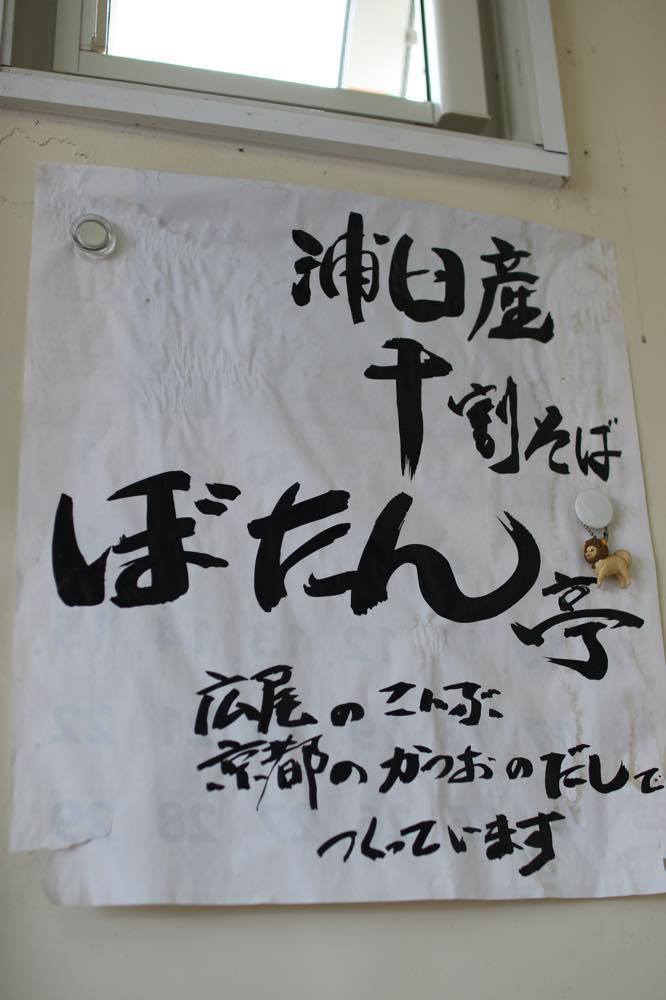 浦臼産
十割そば
ぼたん亭
広尾のこんぶ
京都のかつおのだしで
つくっています